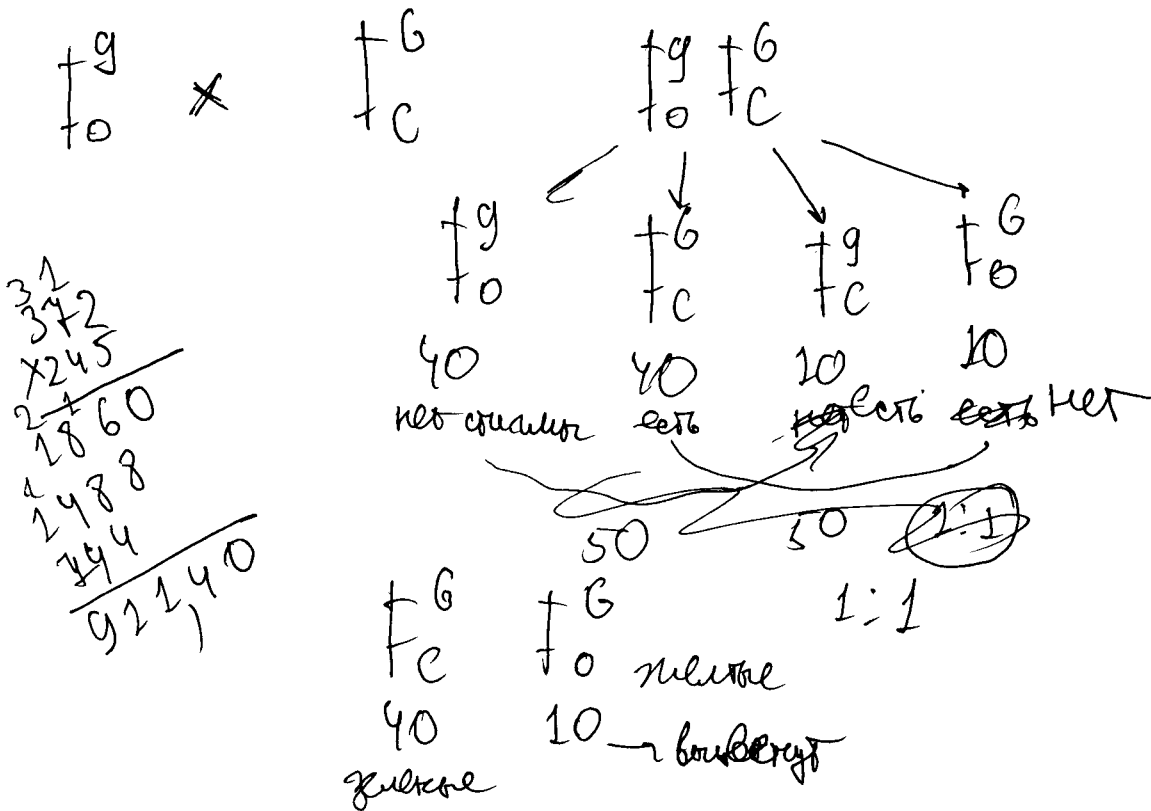 g × G g G
o C o C
g G g G
o C C o
40 40 10 10
нет стигмы есть есть нет
50 50 1:1
1:1
G G
C o желтые
40 10 → выцветут
зеленые
3 1
372
×245
2 1
1860
1
1488
744
92140
1